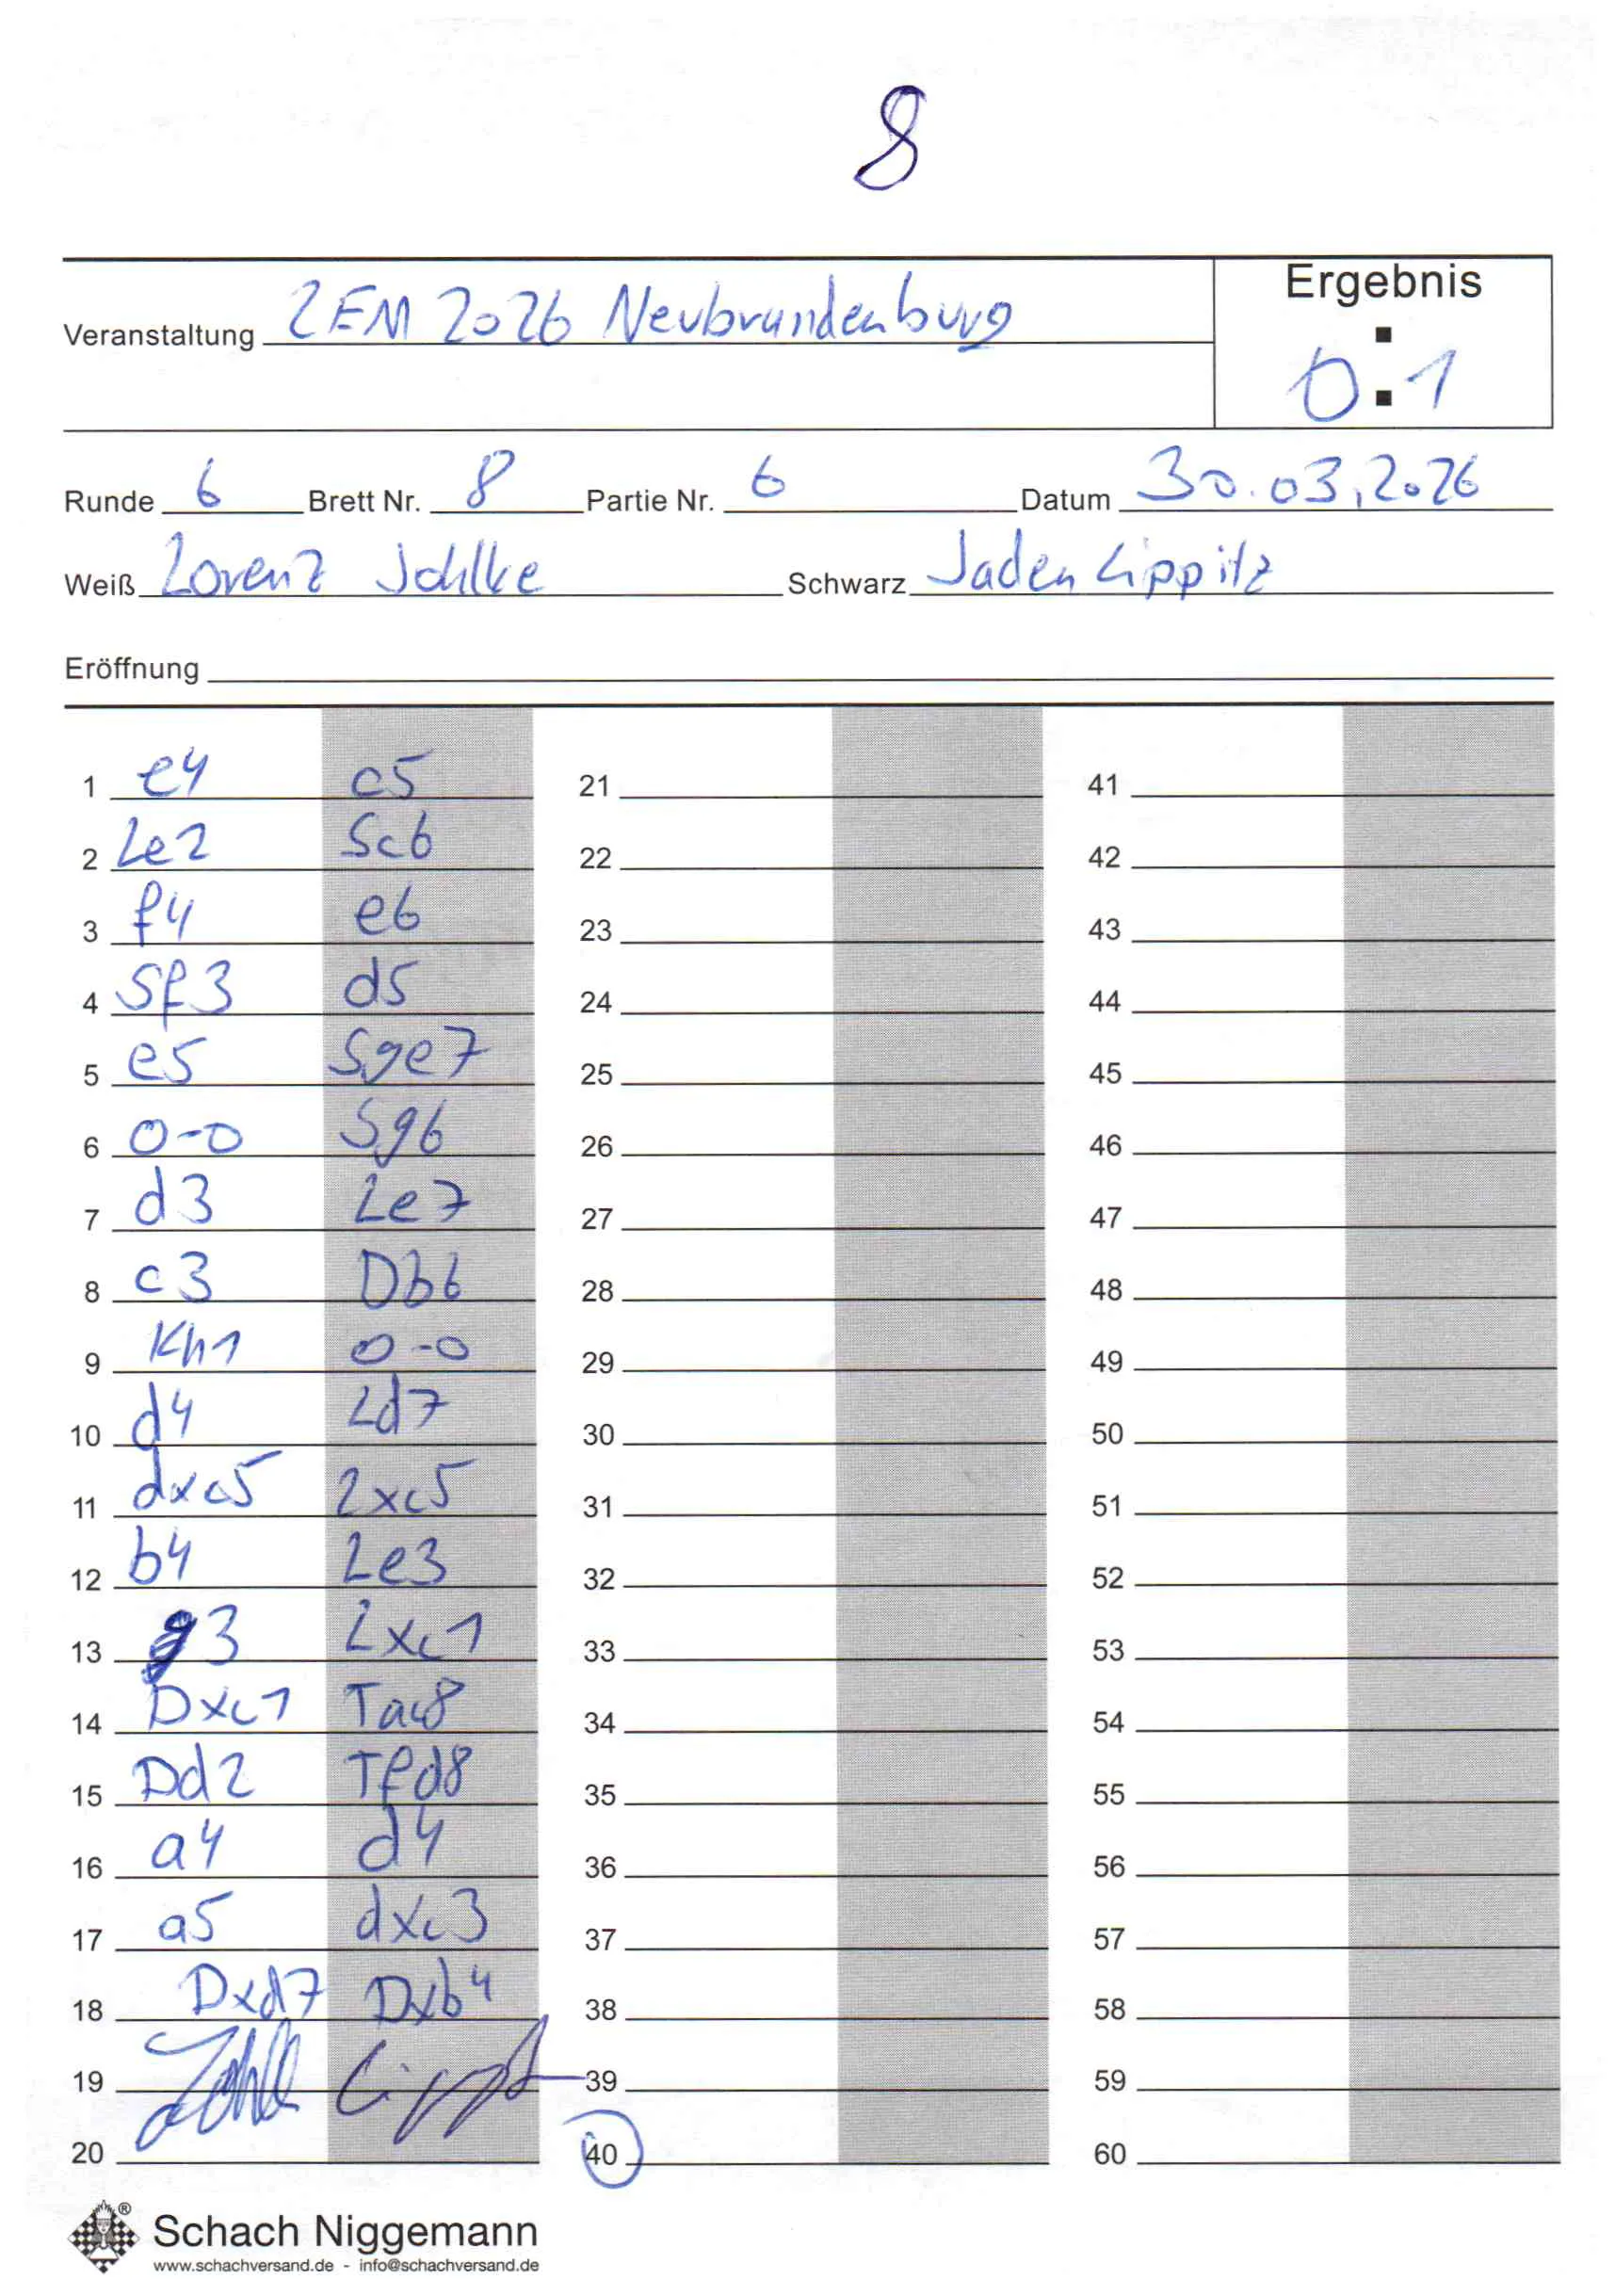 8
Ergebnis
Veranstaltung LEM 2026 Neubrandenburg
0:1
Runde 6 Brett Nr. 8 Partie Nr. 6 Datum 30.03.2026
Weiß Lorenz Jahlke Schwarz Jaden Lippitz
Eröffnung
1 e4 c5 21 41
2 Le2 Sc6 22 42
3 f4 e6 23 43
4 Sf3 d5 24 44
5 e5 Sge7 25 45
6 0-0 Sg6 26 46
7 d3 Le7 27 47
8 c3 Db6 28 48
9 Kh1 0-0 29 49
10 d4 Ld7 30 50
11 dxc5 Lxc5 31 51
12 b4 Le3 32 52
13 g3 Lxc1 33 53
14 Dxc1 Tac8 34 54
15 Dd2 Tfd8 35 55
16 a4 d4 36 56
17 a5 dxc3 37 57
18 Dxd7 Dxb4 38 58
19 39 59
20 40 60
Schach Niggemann
www.schachversand.de - info@schachversand.de